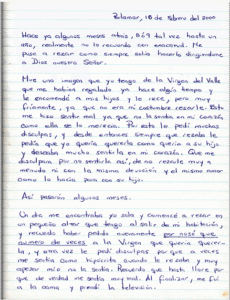 Polamar, 18 de Febrero del 2000
Hace ya algunos meses atrás, 8 ó 9 tal vez hasta un
año, realmente no lo recuerdo con exactitud. Me puse
a rezar como siempre solía hacerlo dirigiéndome
a Dios nuestro Señor.
Miré una imagen que yo tengo de la Virgen del Valle
que me habían regalado ya hace algún tiempo y
le encomendé a mis hijos y le recé, pero muy
fríamente, ya que no era mi costumbre rezarle. Esto
me hizo sentir mal ya que no la sentía en mi corazón
como ella se lo merecía. Por esto le pedí muchas
disculpas, y desde entonces siempre que rezaba le
pedía que yo quería, quererla como quería a su hijo
y deseaba mucho sentirla en mi corazón. Que me
disculpara por no sentirla así, de no rezarle muy a
menudo ni con la misma devoción y el mismo amor
como lo hacía para con su hijo.
Así pasaron algunos meses.
Un día me encontraba yo sola y comencé a rezar en
un pequeño altar que tengo al salir de mi habitación,
y recuerdo haber pedido nuevamente por no sé que
número de veces a la Virgen que quería querer-
la, y otra vez le pedí disculpas por que a veces
me sentía como hipócrita cuando le rezaba y muy
apesar mío no la sentía. Recuerdo que hasta lloré por
que de verdad me sentía muy mal. Al finalizar, me fuí
a la cama y prendí la televisión.